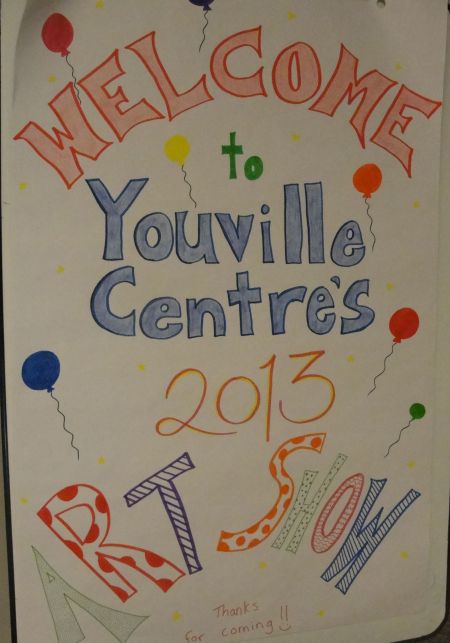 WELCOME
to
Youville
Centre's
2013
ART SHOW
Thanks
for coming!!